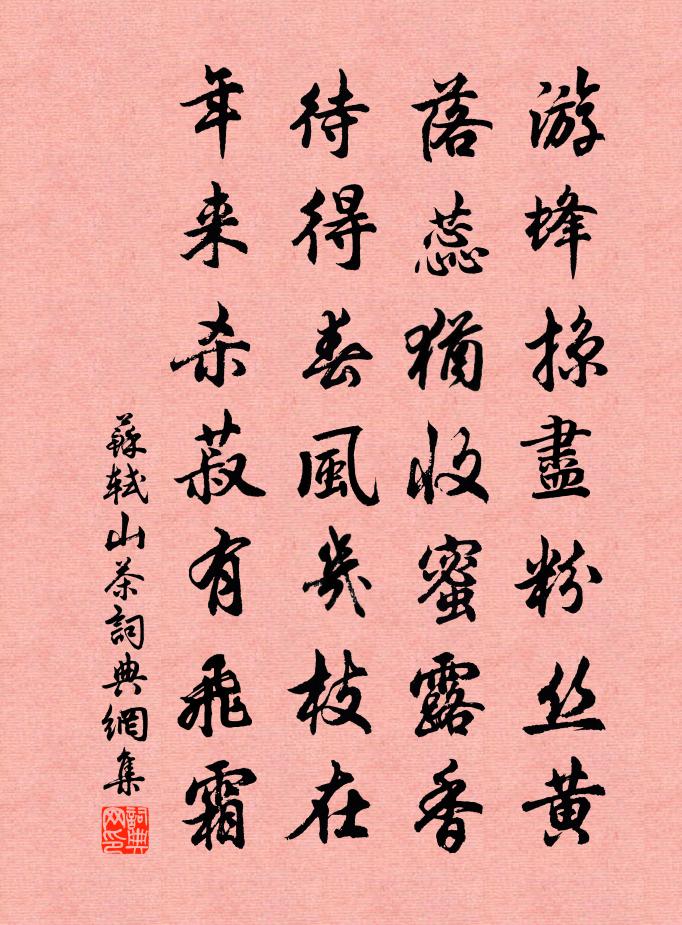 游蜂掠盡粉丝黄
落蕊猶收蜜露香
待得春風幾枝在
年来杀菽有飛霜
蘇軾山茶詞典網集
詞典网印